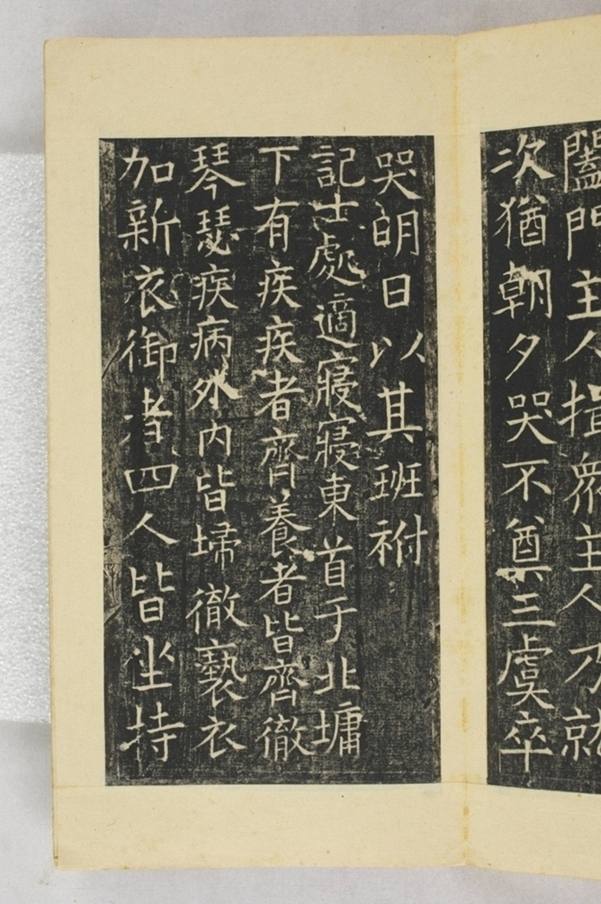 闔門主人揖衆主人乃就
次猶朝夕哭不奠三虞卒
哭明日以其班祔
記士處適寢寢東首于北墉
下有疾疾者齊養者皆齊徹
琴瑟疾病外内皆埽徹褻衣
加新衣御者四人皆坐持